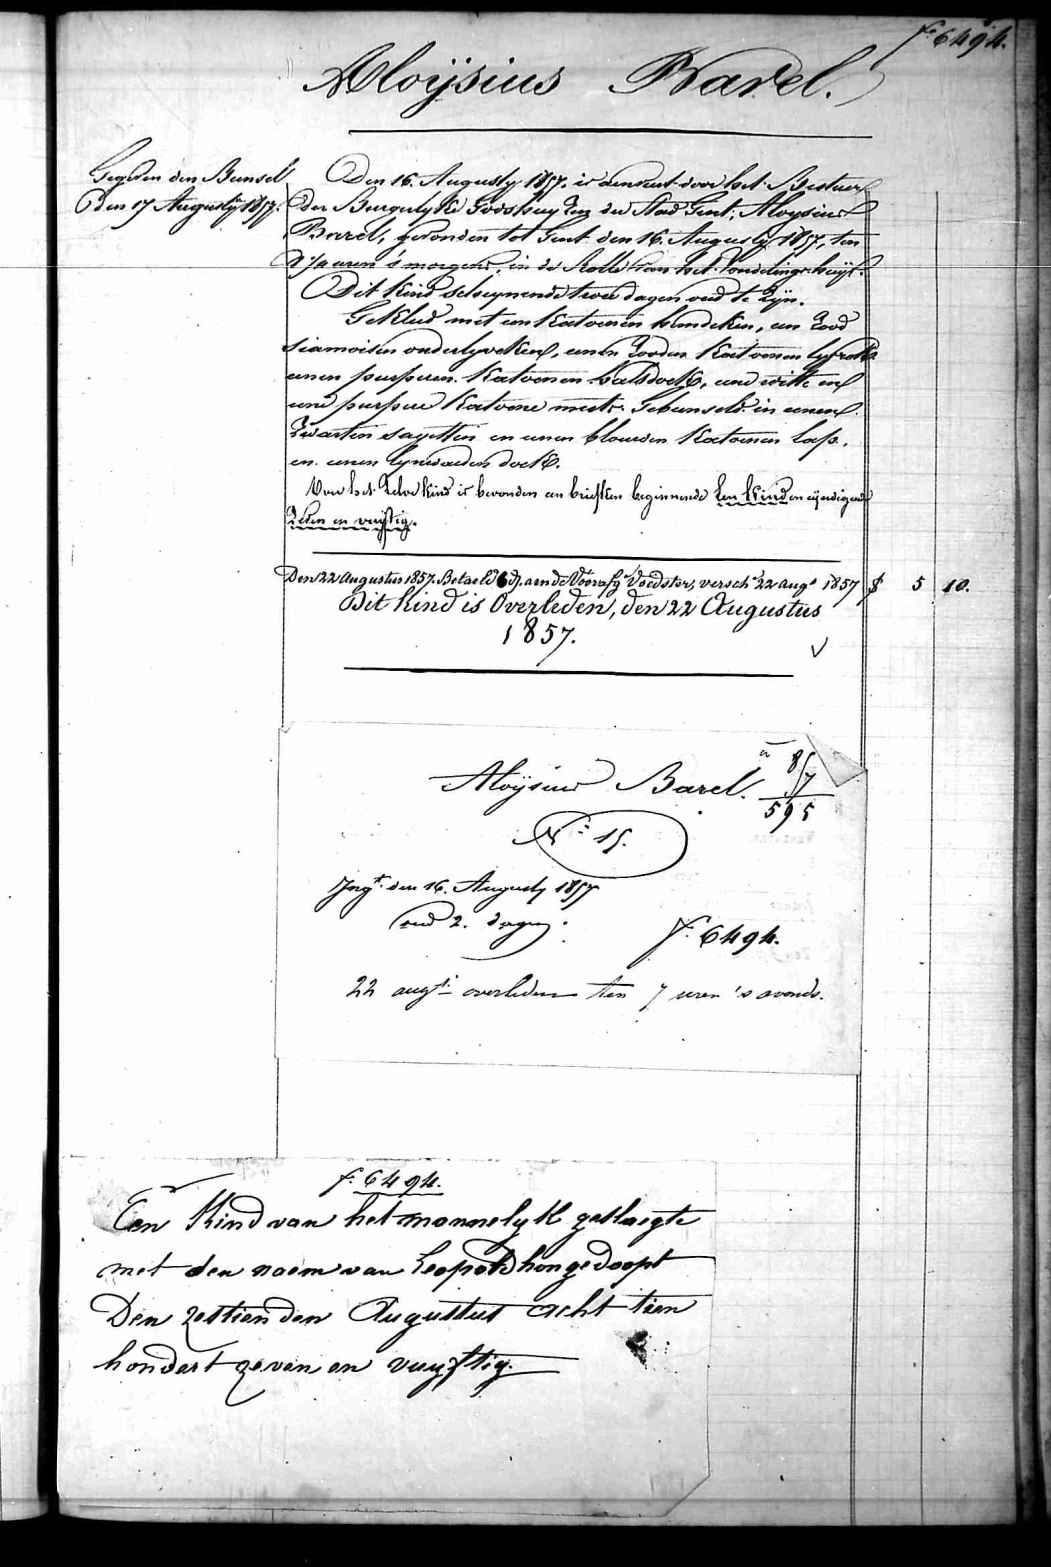 f° 6494.
Aloÿsius Barel.
Den 17 Augusty 1857.
Den 16. Augusty 1857. is aenveerd door het Bestuer
der Burgerlyke Godshuyzen der Stad Gent; Aloysius
Barel, gevonden tot Gent den 16. Augusty 1857, ten
uren 's morgens, in de Rolle van het Vondelingshuys.
Dit Kind schynende twee dagen oud te zyn.
Gekleed met een Katoenen hemdeken, een Rood
siamoisen onderlyveken, eenen Rooden Katoenen
eenen purperen Katoenen halsdoek, eene witte en
eene purpere Katoene muts. Gebunseld in eenen
Zwarten sayetten en eenen blauwen Katoenen lap.
en eenen lynwaeden doek.
Van het Zelve kind is bevonden een briefken beginnende Een Kind en eyndigende
Zeven en vuyftig.
Den 22 Augustus 1857. Betaeld 6 d. aen de Voedster, versch. 22 aug.s 1857 $ 5 10.
Dit Kind is Overleden, den 22 Augustus
1857.
Aloÿsius Barel.
85
7
595
N° 15.
Ing.t den 16. Augusty 1857
oud 2. dagen.
f° 6494.
22 aug.ti overleden ten 7 uren 's avonds.
f. 6494.
Een Kind van het mannelyk geslaegte
met den naem van Leopold hongedoopt
Den zestienden Augustus acht tien
hondert zeven en vuyftig.